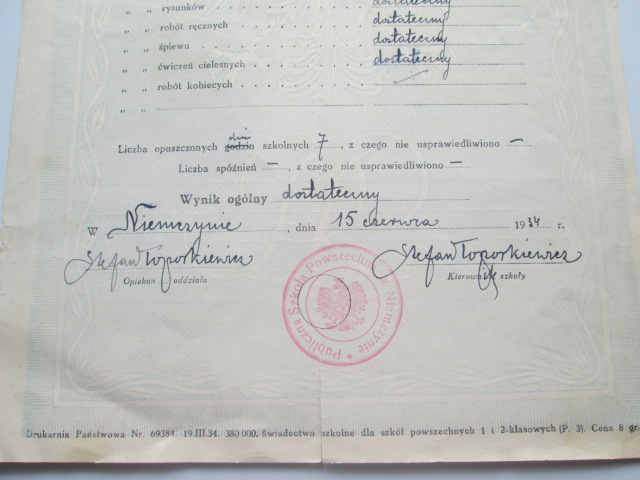 „ „ rysunków dostateczny
„ „ robót ręcznych dostateczny
„ „ śpiewu dostateczny
„ „ ćwiczeń cielesnych dostateczny
„ „ robót kobiecych
„ „
dni
Liczba opuszczonych godzin szkolnych 7, z czego nie usprawiedliwiono —
Liczba spóźnień —, z czego nie usprawiedliwiono —
Wynik ogólny dostateczny
W Niemczynie, dnia 15 czerwca 1934 r.
Stefan Toporkiewicz Stefan Toporkiewicz
Opiekun oddziału Kierownik szkoły
Publiczna Szkoła Powszechna w Niemczynie *
Drukarnia Państwowa Nr. 69384. 19.III.34. 380 000. Świadectwo szkolne dla szkół powszechnych 1 i 2-klasowych (P. 3). Cena 8 gr.